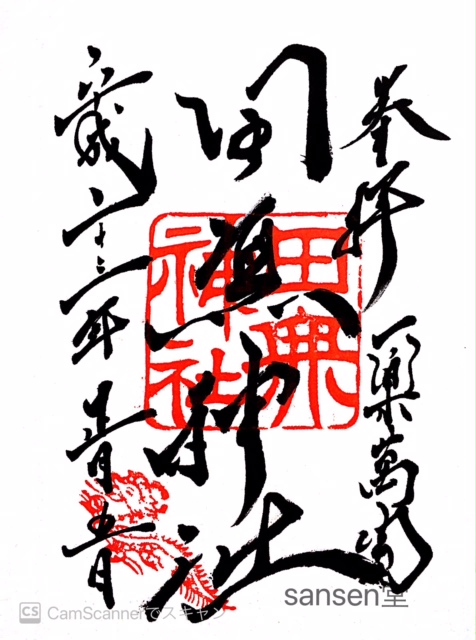 奉拝 一 萬
田無神社
平成二十三年 正月五日
田無
神社
sansen堂
CS CamScannerでスキャン